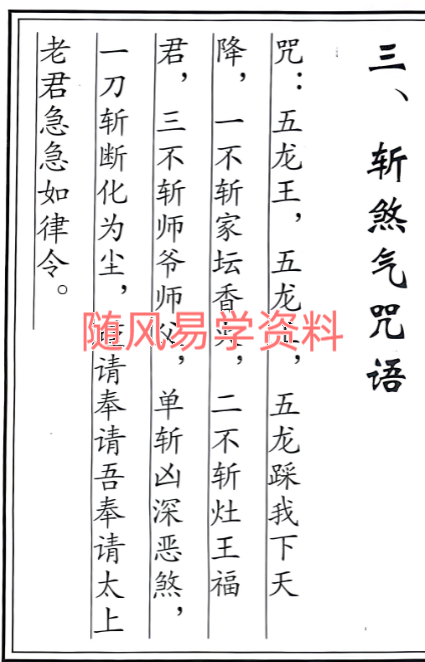 三、斩煞气咒语
咒：五龙王，五龙，五龙踩我下天
降，一不斩家坛香，二不斩灶王福
君，三不斩师爷师父，单斩凶深恶煞，
一刀斩断化为尘，请奉请吾奉请太上
老君急急如律令。
随风易学资料